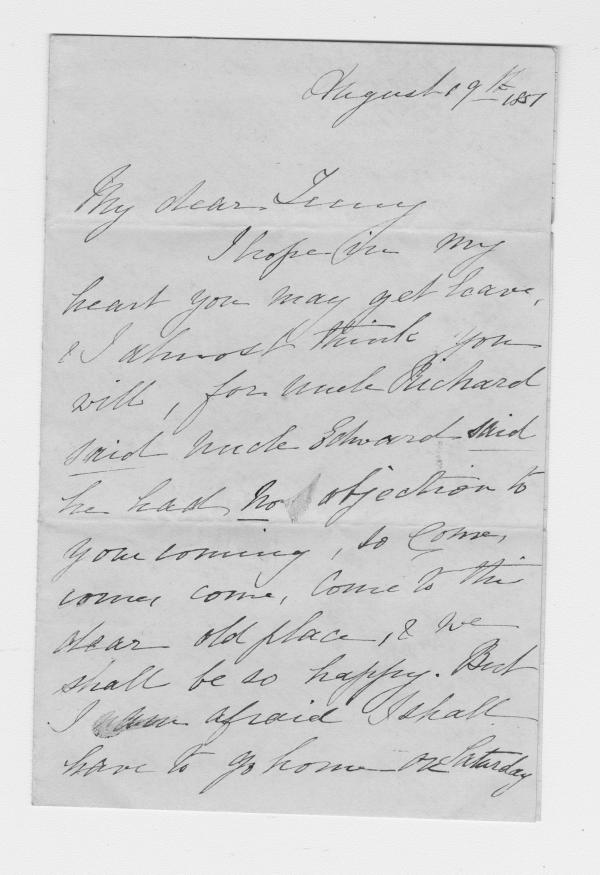 August 19th 1851
My dear Tenny
I hope in my
heart you may get leave,
& I almost think you
will, for uncle Richard
said uncle Edward said
he had no objection to
your coming, so come,
come, come, come to this
dear old place, & we
shall be so happy. But
I am afraid I shall
have to go home on Saturday